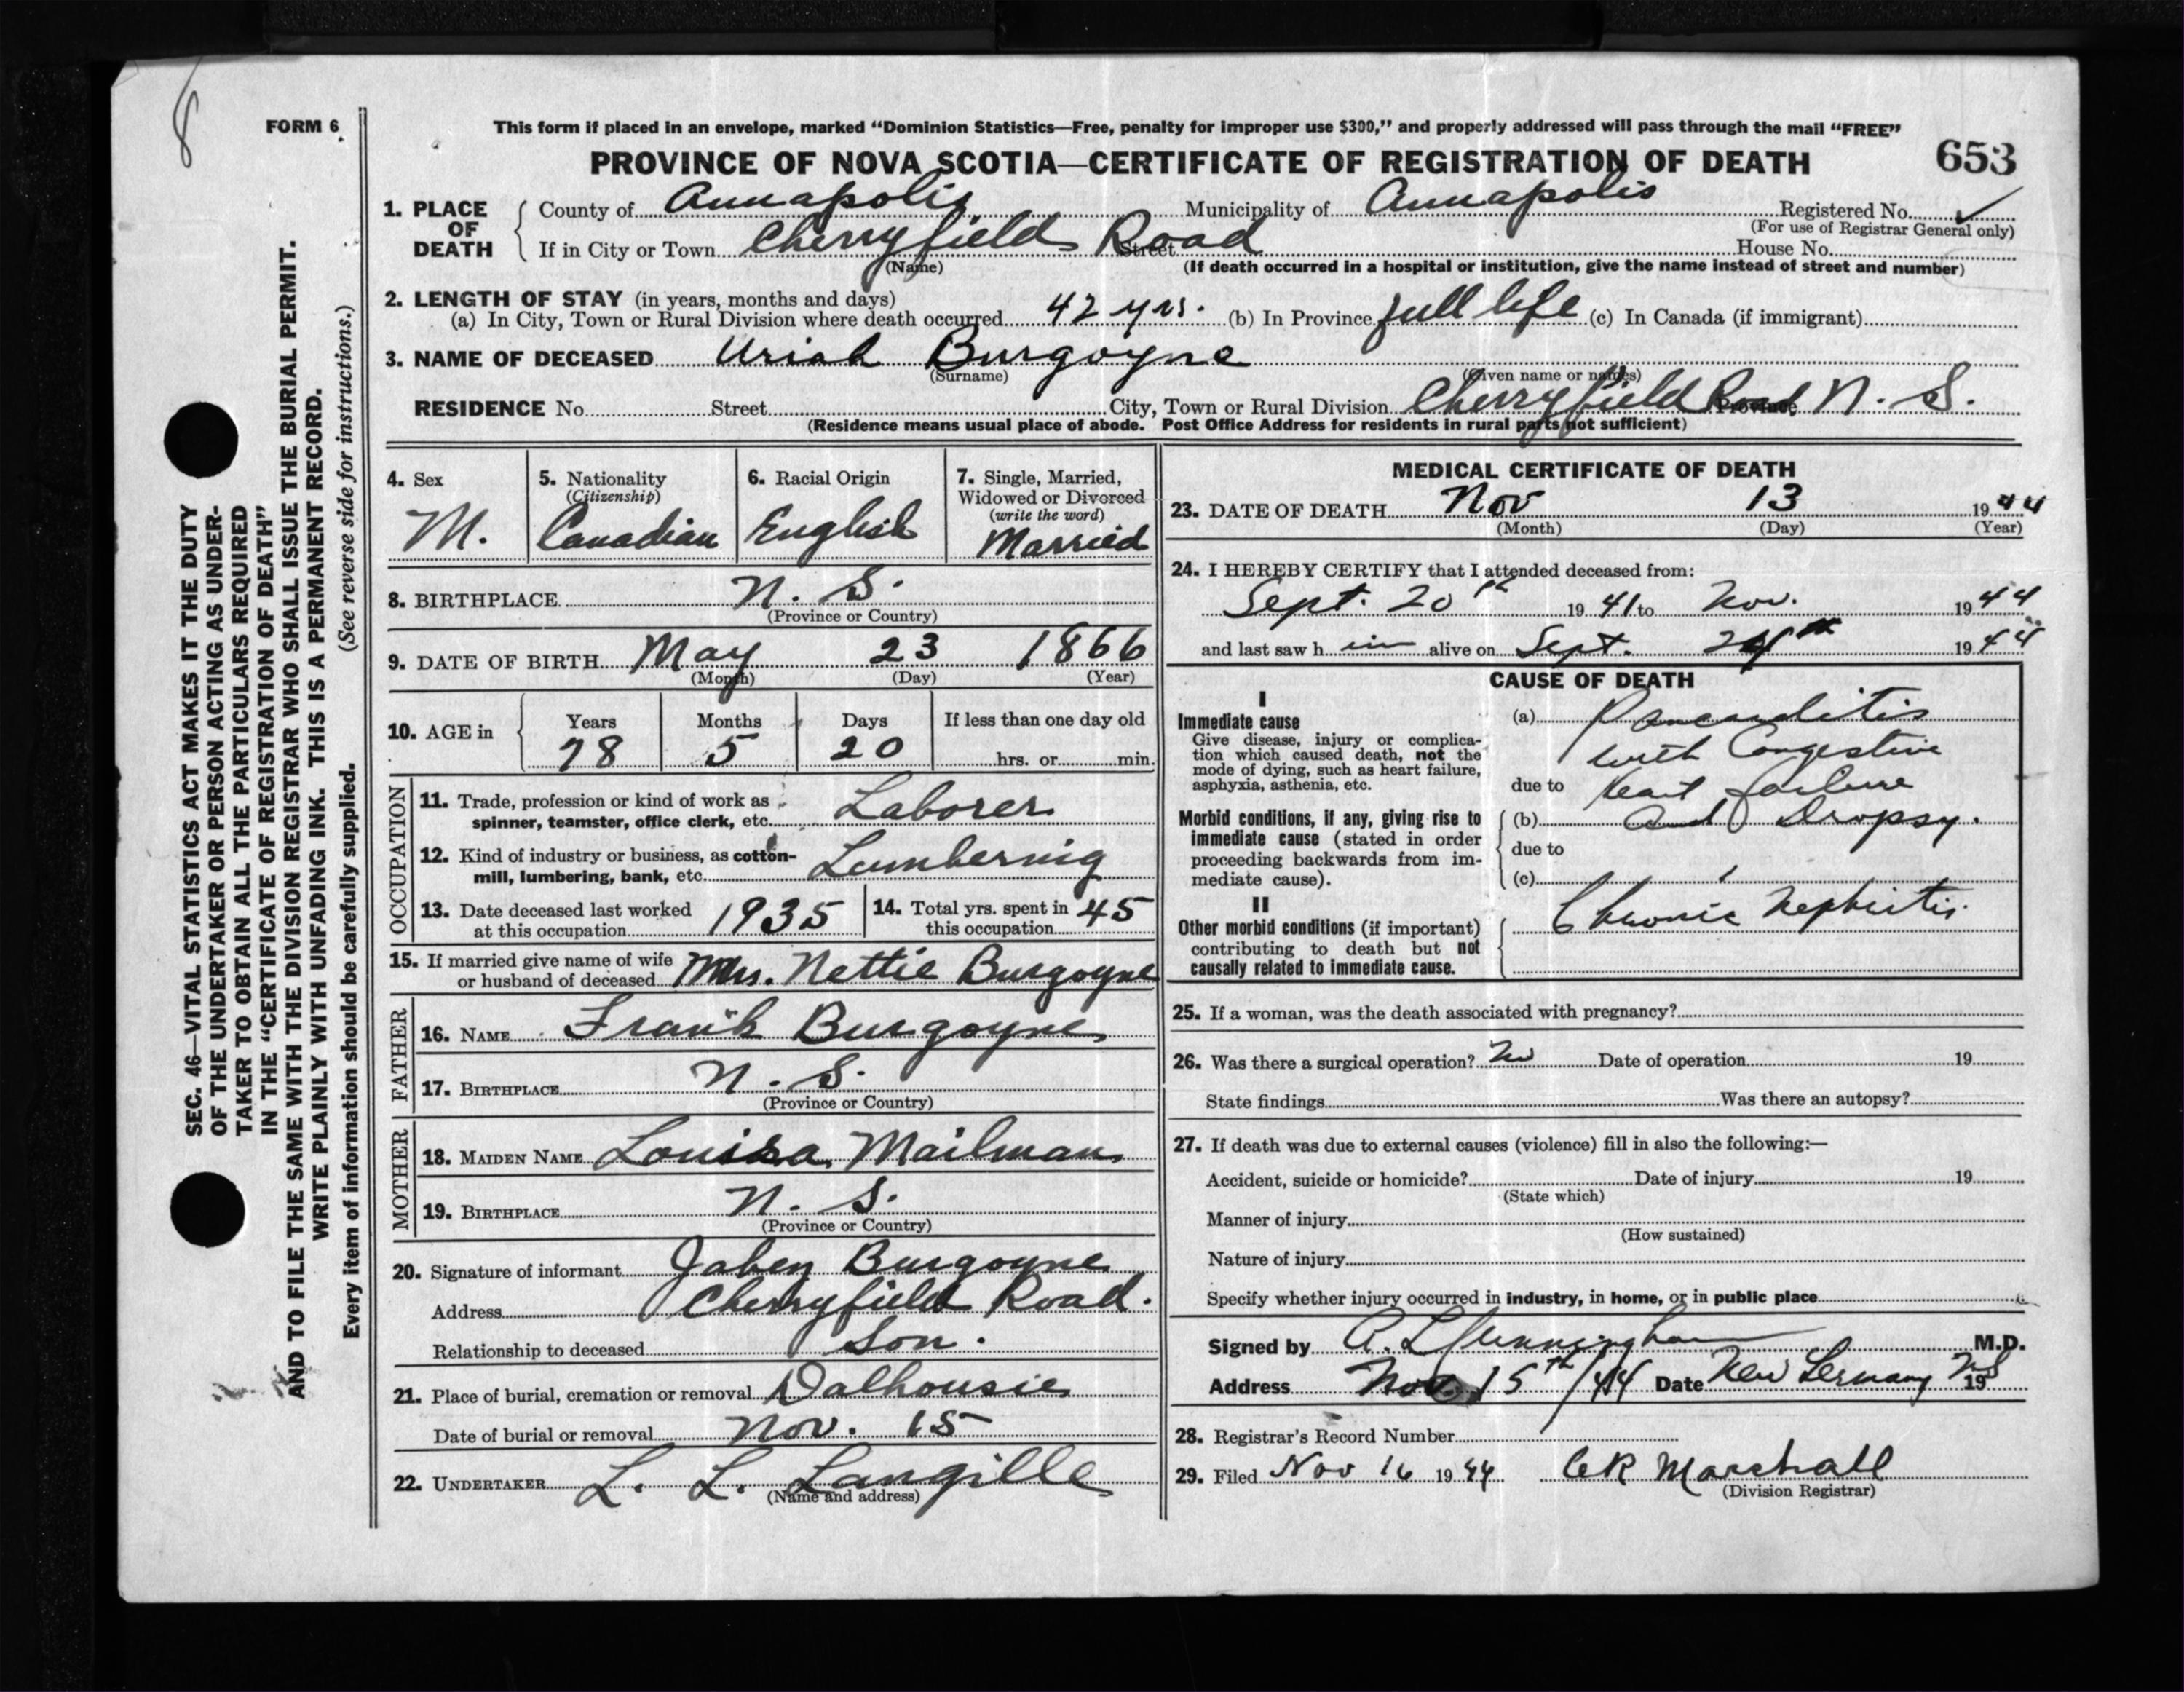 8
FORM 6
This form if placed in an envelope, marked "Dominion Statistics—Free, penalty for improper use $300," and properly addressed will pass through the mail "FREE"
PROVINCE OF NOVA SCOTIA—CERTIFICATE OF REGISTRATION OF DEATH 653
1. PLACE OF DEATH
County of Annapolis Municipality of Annapolis Registered No. ✓
(For use of Registrar General only)
If in City or Town Cherryfield Road Street House No.
(Name) (If death occurred in a hospital or institution, give the name instead of street and number)
2. LENGTH OF STAY (in years, months and days)
(a) In City, Town or Rural Division where death occurred 42 yrs. (b) In Province full life (c) In Canada (if immigrant)
3. NAME OF DECEASED Uriah Burgoyne
(Surname) (Given name or names)
RESIDENCE No. Street City, Town or Rural Division Cherryfield Road Province N. S.
(Residence means usual place of abode. Post Office Address for residents in rural parts not sufficient)
4. Sex M.
5. Nationality (Citizenship) Canadian
6. Racial Origin English
7. Single, Married, Widowed or Divorced (write the word) Married
8. BIRTHPLACE N. S.
(Province or Country)
9. DATE OF BIRTH May 23 1866
(Month) (Day) (Year)
10. AGE in Years 78 Months 5 Days 20 If less than one day old hrs. or min.
OCCUPATION
11. Trade, profession or kind of work as spinner, teamster, office clerk, etc. Laborer
12. Kind of industry or business, as cotton-mill, lumbering, bank, etc. Lumbering
13. Date deceased last worked at this occupation 1935
14. Total yrs. spent in this occupation 45
15. If married give name of wife or husband of deceased Mrs. Nettie Burgoyne
FATHER
16. NAME Frank Burgoyne
17. BIRTHPLACE N. S.
(Province or Country)
MOTHER
18. MAIDEN NAME Louisa Mailman
19. BIRTHPLACE N. S.
(Province or Country)
20. Signature of informant Jabez Burgoyne
Address Cherryfield Road.
Relationship to deceased Son.
21. Place of burial, cremation or removal Dalhousie
Date of burial or removal Nov. 15
22. UNDERTAKER L. L. Langille
(Name and address)
MEDICAL CERTIFICATE OF DEATH
23. DATE OF DEATH Nov 13 1944
(Month) (Day) (Year)
24. I HEREBY CERTIFY that I attended deceased from:
Sept. 20th 1941 to Nov. 1944
and last saw him alive on Sept. 1944
CAUSE OF DEATH
I
Immediate cause
Give disease, injury or complication which caused death, not the mode of dying, such as heart failure, asphyxia, asthenia, etc.
(a) Pancarditis
with Congestive
due to heart failure
Morbid conditions, if any, giving rise to immediate cause (stated in order proceeding backwards from immediate cause).
(b) and Dropsy.
due to
(c)
II
Other morbid conditions (if important) contributing to death but not causally related to immediate cause.
Chronic Nephritis.
25. If a woman, was the death associated with pregnancy?
26. Was there a surgical operation? No Date of operation 19
State findings Was there an autopsy?
27. If death was due to external causes (violence) fill in also the following:—
Accident, suicide or homicide? Date of injury 19
(State which)
Manner of injury
(How sustained)
Nature of injury
Specify whether injury occurred in industry, in home, or in public place
Signed by A. L. Cunningham M.D.
Address Nov. 15th/44 Date New Germany NS 19
28. Registrar's Record Number
29. Filed Nov 16 1944 CR Marshall
(Division Registrar)
SEC. 46—VITAL STATISTICS ACT MAKES IT THE DUTY
OF THE UNDERTAKER OR PERSON ACTING AS UNDER-
TAKER TO OBTAIN ALL THE PARTICULARS REQUIRED
IN THE "CERTIFICATE OF REGISTRATION OF DEATH"
AND TO FILE THE SAME WITH THE DIVISION REGISTRAR WHO SHALL ISSUE THE BURIAL PERMIT.
WRITE PLAINLY WITH UNFADING INK. THIS IS A PERMANENT RECORD.
Every item of information should be carefully supplied. (See reverse side for instructions.)